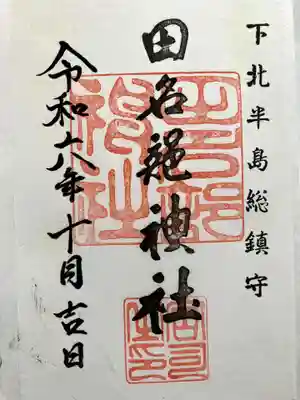 下北半島総鎮守
田名部神社
令和六年十月吉日